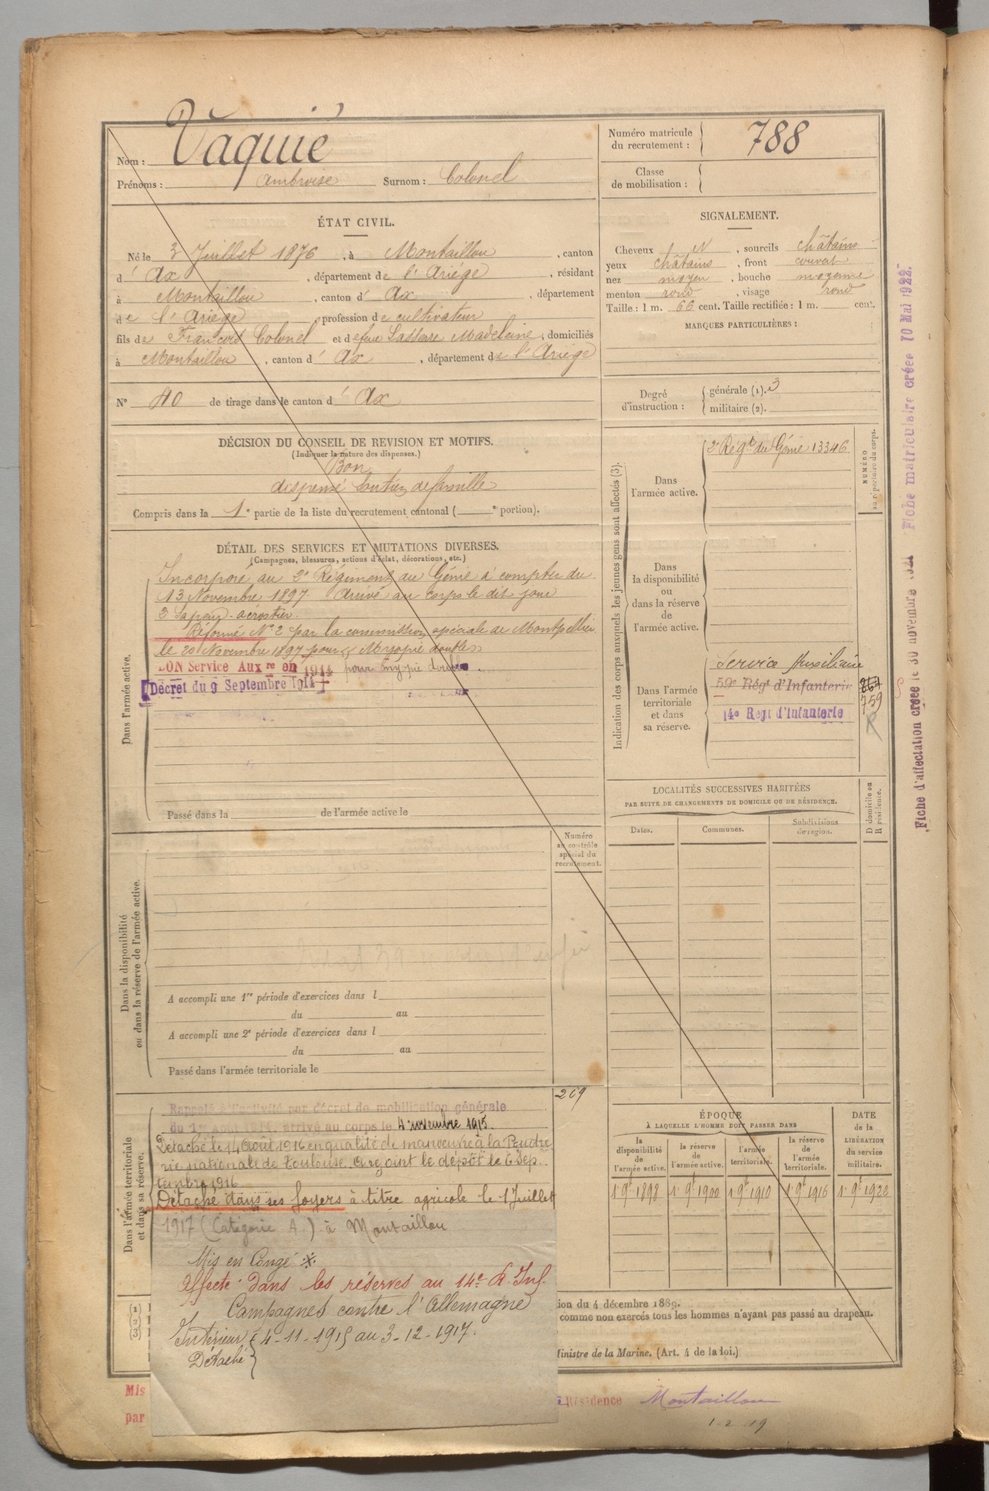 Nom : Vaquié
Prénoms : Ambroise Surnom : Colonel
Numéro matricule du recrutement : 788
Classe de mobilisation :
ÉTAT CIVIL.
Né le 3 Juillet 1876, à Montaillou, canton
d'Ax, département de l'Ariège, résidant
à Montaillou, canton d'Ax, département
de l'Ariège, profession de cultivateur
fils de François Colonel et de feue Lassare Madeleine, domiciliés
à Montaillou, canton d'Ax, département de l'Ariège
N° 40 de tirage dans le canton d'Ax
SIGNALEMENT.
Cheveux N, sourcils châtains
yeux châtains, front couvert
nez moyen, bouche moyenne
menton rond, visage rond
Taille : 1 m. 66 cent. Taille rectifiée : 1 m. cent.
MARQUES PARTICULIÈRES :
Degré d'instruction : générale (1). 3
militaire (2).
DÉCISION DU CONSEIL DE REVISION ET MOTIFS.
(Indiquer la nature des dispenses.)
Bon
dispensé soutien de famille
Compris dans la 1e partie de la liste du recrutement cantonal ( e portion).
DÉTAIL DES SERVICES ET MUTATIONS DIVERSES.
(Campagnes, blessures, actions d'éclat, décorations, etc.)
Dans l'armée active.
Incorporé au 2e Régiment du Génie à compter du
13 Novembre 1897. Arrivé au corps le dit jour
2e Sapeur-aérostier
Réformé N° 2 par la commission spéciale de Montpellier
le 20 Novembre 1897 pour « Myopie double »
BON Service Auxre en 1914 pour myopie double.
Décret du 9 Septembre 1914
Passé dans la de l'armée active le
Indication des corps auxquels les jeunes gens sont affectés (3).
NUMÉRO au répertoire du corps.
Dans l'armée active.
2e Régt du Génie 13346
Dans la disponibilité ou dans la réserve de l'armée active.
Dans l'armée territoriale et dans sa réserve.
Service Auxiliaire
59e Régt d'Infanterie
759
14e Regt d'Infanterie
LOCALITÉS SUCCESSIVES HABITÉES
PAR SUITE DE CHANGEMENTS DE DOMICILE OU DE RÉSIDENCE.
Dates. Communes. Subdivisions de région. D domicile ou R résidence.
Numéro au contrôle spécial du recrutement.
Dans la disponibilité ou dans la réserve de l'armée active.
A accompli une 1re période d'exercices dans l
du au
A accompli une 2e période d'exercices dans l
du au
Passé dans l'armée territoriale le
269
Dans l'armée territoriale et dans sa réserve.
Rappelé à l'activité par décret de mobilisation générale
du 1er Août 1914, arrivé au corps le 4 novembre 1915.
Détaché le 14 août 1916 en qualité de manoeuvre à la Poudre
rie nationale de Toulouse. a rejoint le dépôt le 6 Sep
tembre 1916
Détaché dans ses foyers à titre agricole le 1 Juillet
1917 (Catégorie A.) à Montaillou
Mis en Congé
Affecté dans les réserves au 14e R. Inf.
Campagnes contre l'Allemagne
Intérieur 4-11-1915 au 3-12-1917.
Détaché
ÉPOQUE
À LAQUELLE L'HOMME DOIT PASSER DANS
la disponibilité de l'armée active. la réserve de l'armée active. l'armée territoriale. la réserve de l'armée territoriale.
DATE de la LIBÉRATION du service militaire.
1er 9e 1898 1er 9e 1900 1er 9e 1910 1er 9e 1916 1er 9e 1922
ion du 4 décembre 1889.
comme non exercés tous les hommes n'ayant pas passé au drapeau.
Ministre de la Marine. (Art. 4 de la loi.)
(1)
(2)
(3)
Mis
par
Résidence Montaillou
1-2 19
Fiche d'affectation créée le 30 novembre 1921 Fiche matriculaire créée 10 Mai 1922.